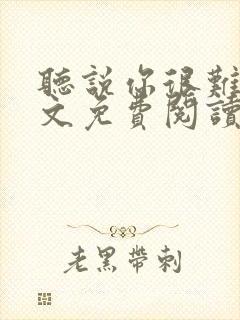 聽說你很難
文免費閱讀
老黑帶刺